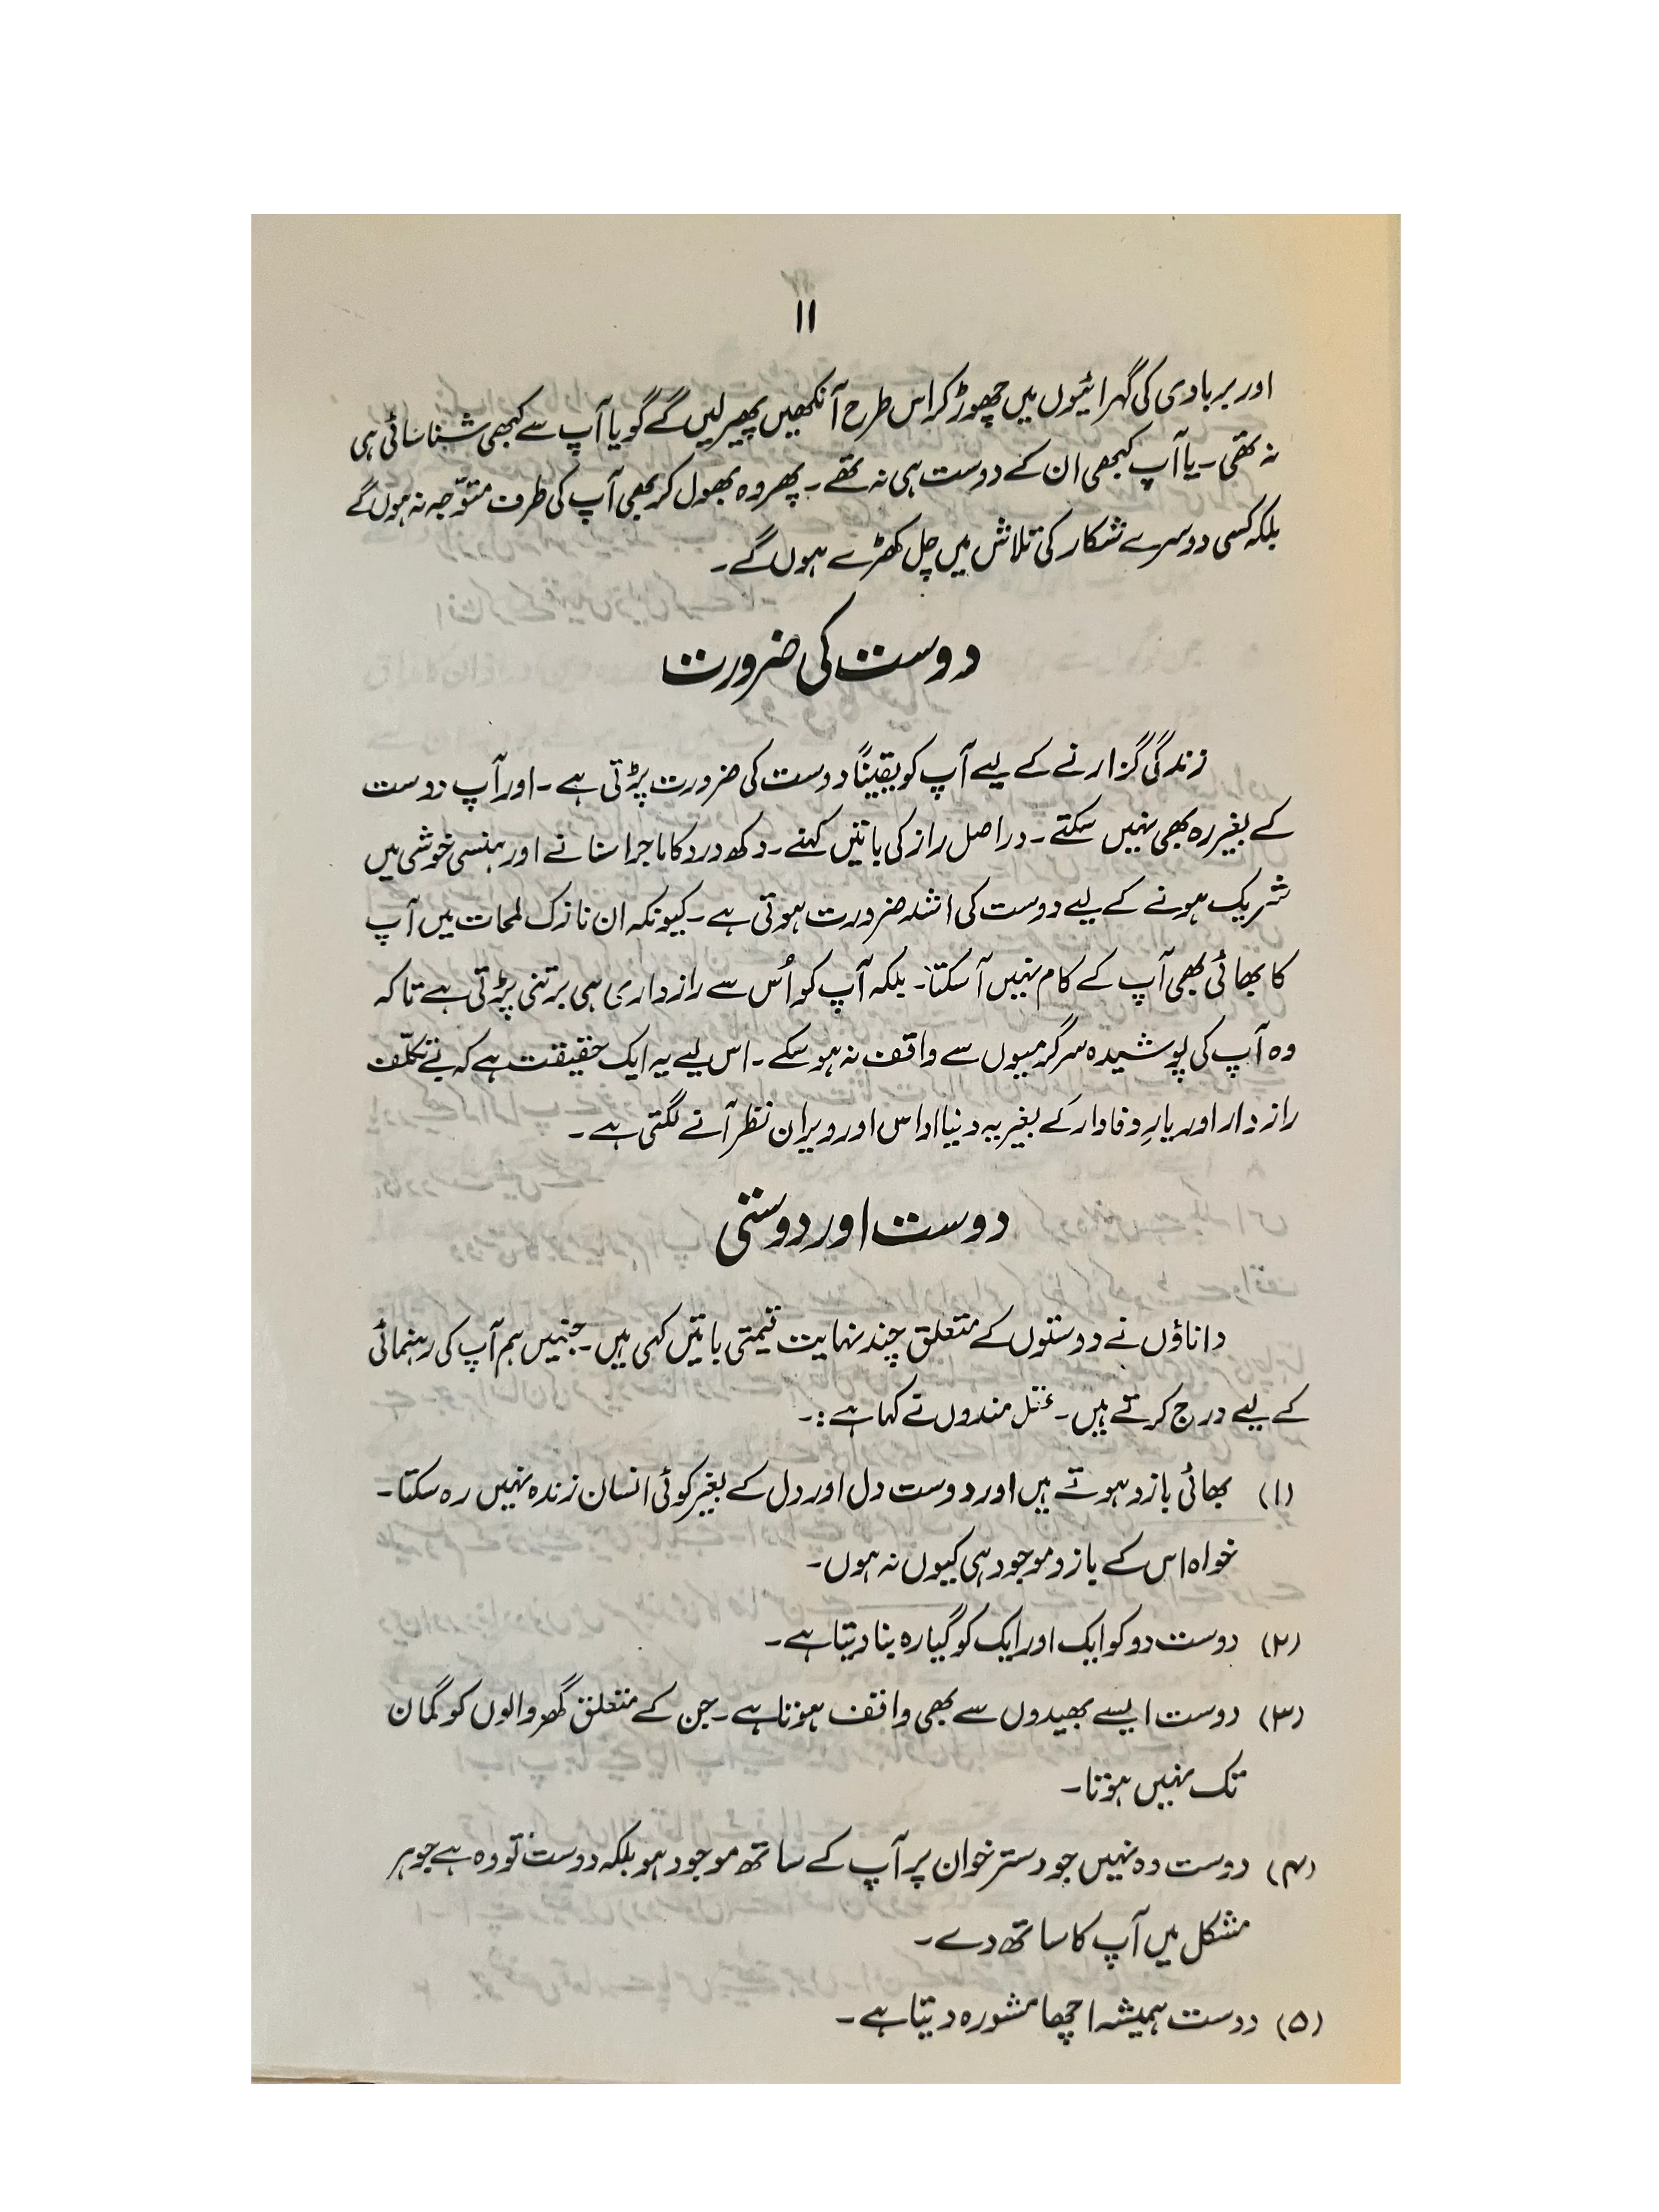 ۱۱
اور بربادی کی گہرائیوں میں چھوڑ کر اس طرح آنکھیں پھیر لیں گے گویا آپ سے کبھی شناسائی ہی
نہ تھی۔ یا آپ کبھی ان کے دوست ہی نہ تھے۔ پھر وہ بھول کر بھی آپ کی طرف متوّجہ نہ ہوں گے
بلکہ کسی دوسرے شکار کی تلاش میں چل کھڑے ہوں گے۔
دوست کی ضرورت
زندگی گزارنے کے لیے آپ کو یقیناً دوست کی ضرورت پڑتی ہے۔ اور آپ دوست
کے بغیر رہ بھی نہیں سکتے۔ دراصل راز کی باتیں کہنے۔ دکھ درد کا ماجرا سنانے اور ہنسی خوشی میں
شریک ہونے کے لیے دوست کی اشد ضرورت ہوتی ہے۔ کیونکہ ان نازک لمحات میں آپ
کا بھائی بھی آپ کے کام نہیں آ سکتا۔ بلکہ آپ کو اُس سے رازداری ہی برتنی پڑتی ہے تاکہ
وہ آپ کی پوشیدہ سرگرمیوں سے واقف نہ ہو سکے۔ اس لیے یہ ایک حقیقت ہے کہ بے تکلّف
رازدار اور یارِ وفادار کے بغیر یہ دنیا اداس اور ویران نظر آنے لگتی ہے۔
دوست اور دوستی
داناؤں نے دوستوں کے متعلق چند نہایت قیمتی باتیں کہی ہیں۔ جنہیں ہم آپ کی رہنمائی
کے لیے درج کرتے ہیں۔ عقل مندوں نے کہا ہے :۔
(۱) بھائی بازو ہوتے ہیں اور دوست دل اور دل کے بغیر کوئی انسان زندہ نہیں رہ سکتا۔
خواہ اس کے بازو موجود ہی کیوں نہ ہوں۔
(۲) دوست دو کو ایک اور ایک کو گیارہ بنا دیتا ہے۔
(۳) دوست ایسے بھیدوں سے بھی واقف ہوتا ہے۔ جن کے متعلق گھر والوں کو گمان
تک نہیں ہوتا۔
(۴) دوست وہ نہیں جو دسترخوان پر آپ کے ساتھ موجود ہو بلکہ دوست تو وہ ہے جو ہر
مشکل میں آپ کا ساتھ دے۔
(۵) دوست ہمیشہ اچھا مشورہ دیتا ہے۔